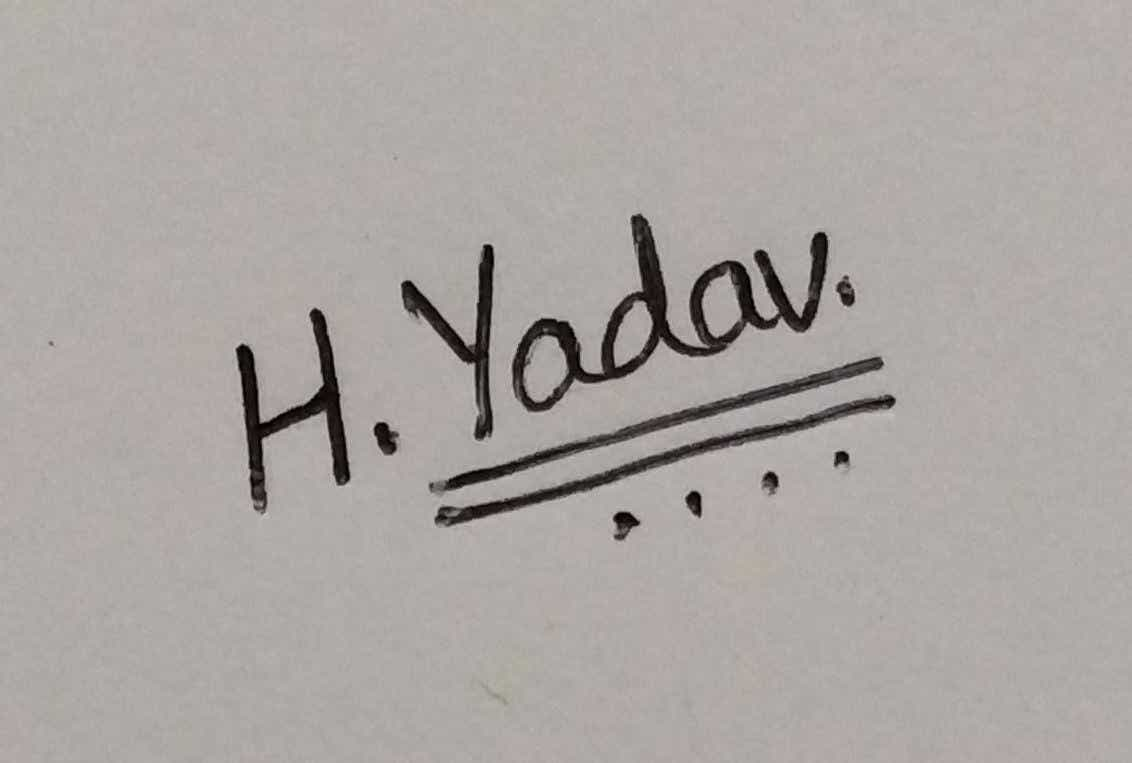 H. Yadav.